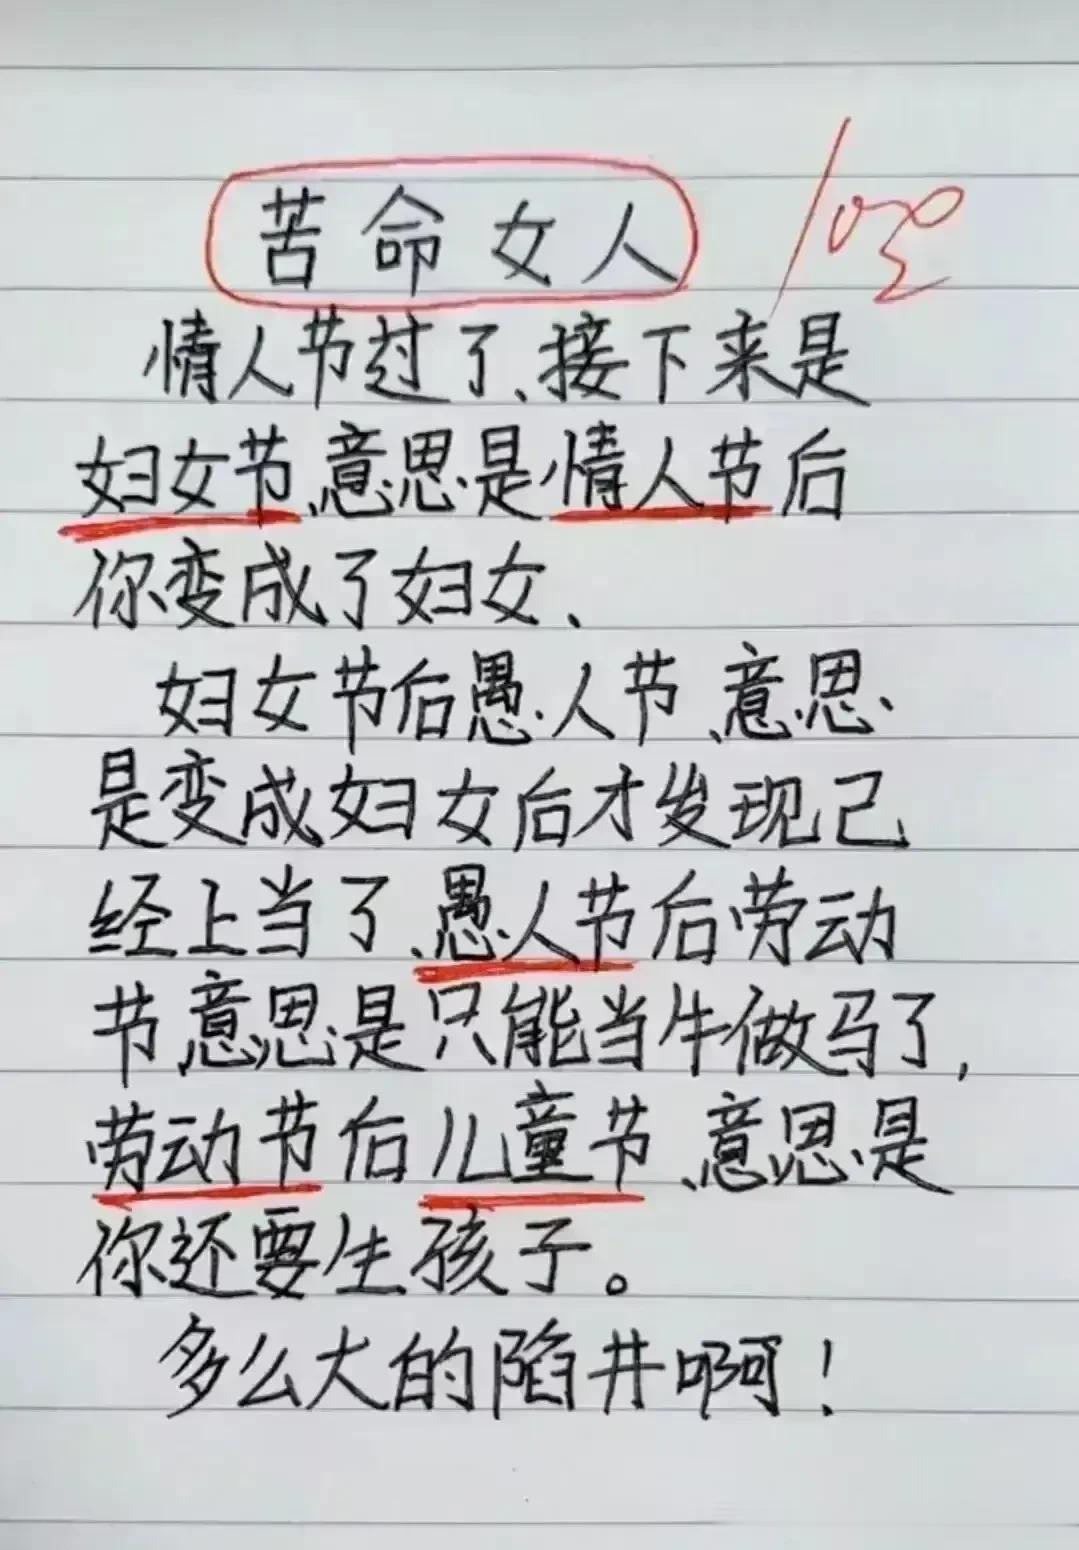 苦命女人
100
情人节过了、接下来是
妇女节、意思是情人节后
你变成了妇女、
妇女节后愚人节、意思
是变成妇女后才发现己
经上当了、愚人节后劳动
节、意思是只能当牛做马了,
劳动节后儿童节、意思是
你还要生孩子。
多么大的陷井啊!